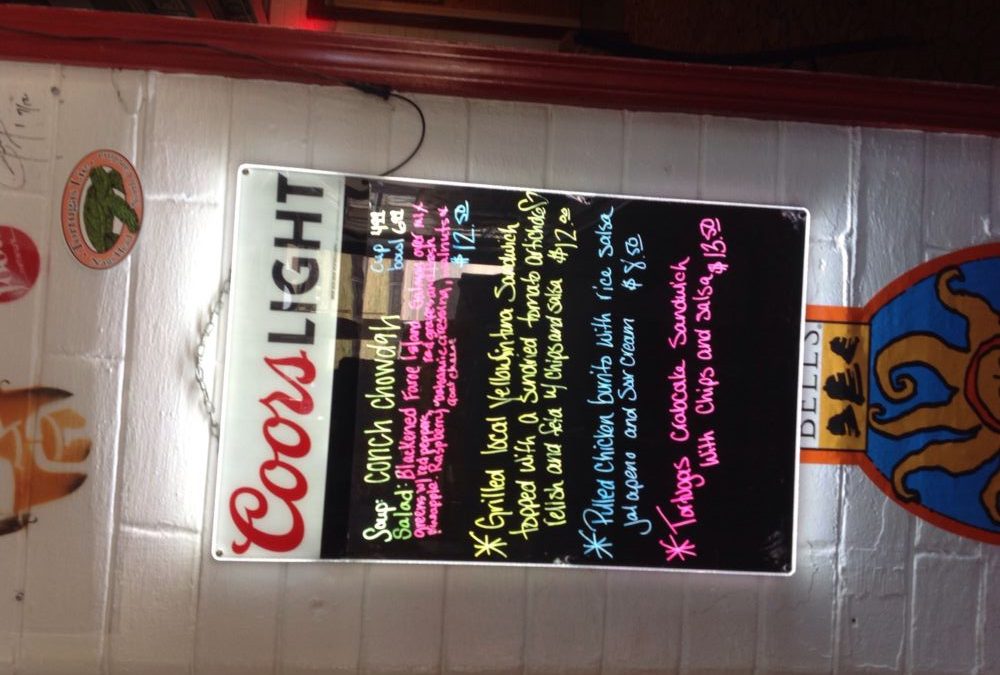 Coors LIGHT
Soup: conch chowdah cup 4.99
bowl 6.99
Salad: Blackened Faroe Island Salmon over mix
greens w/ red pepper, red onion
pineapple Raspberry dressing, walnuts &
goat cheese $12.50
*Grilled local Yellowfin tuna Sandwich
topped with a Sundried tomato artichoke
relish and feta w/ chips and salsa $12.00
*Pulled Chicken burrito with rice salsa
jalapeno and Sour Cream $8.50
*Tortugas Crabcake Sandwich
with Chips and Salsa $13.50
BELL'S
Tortugas